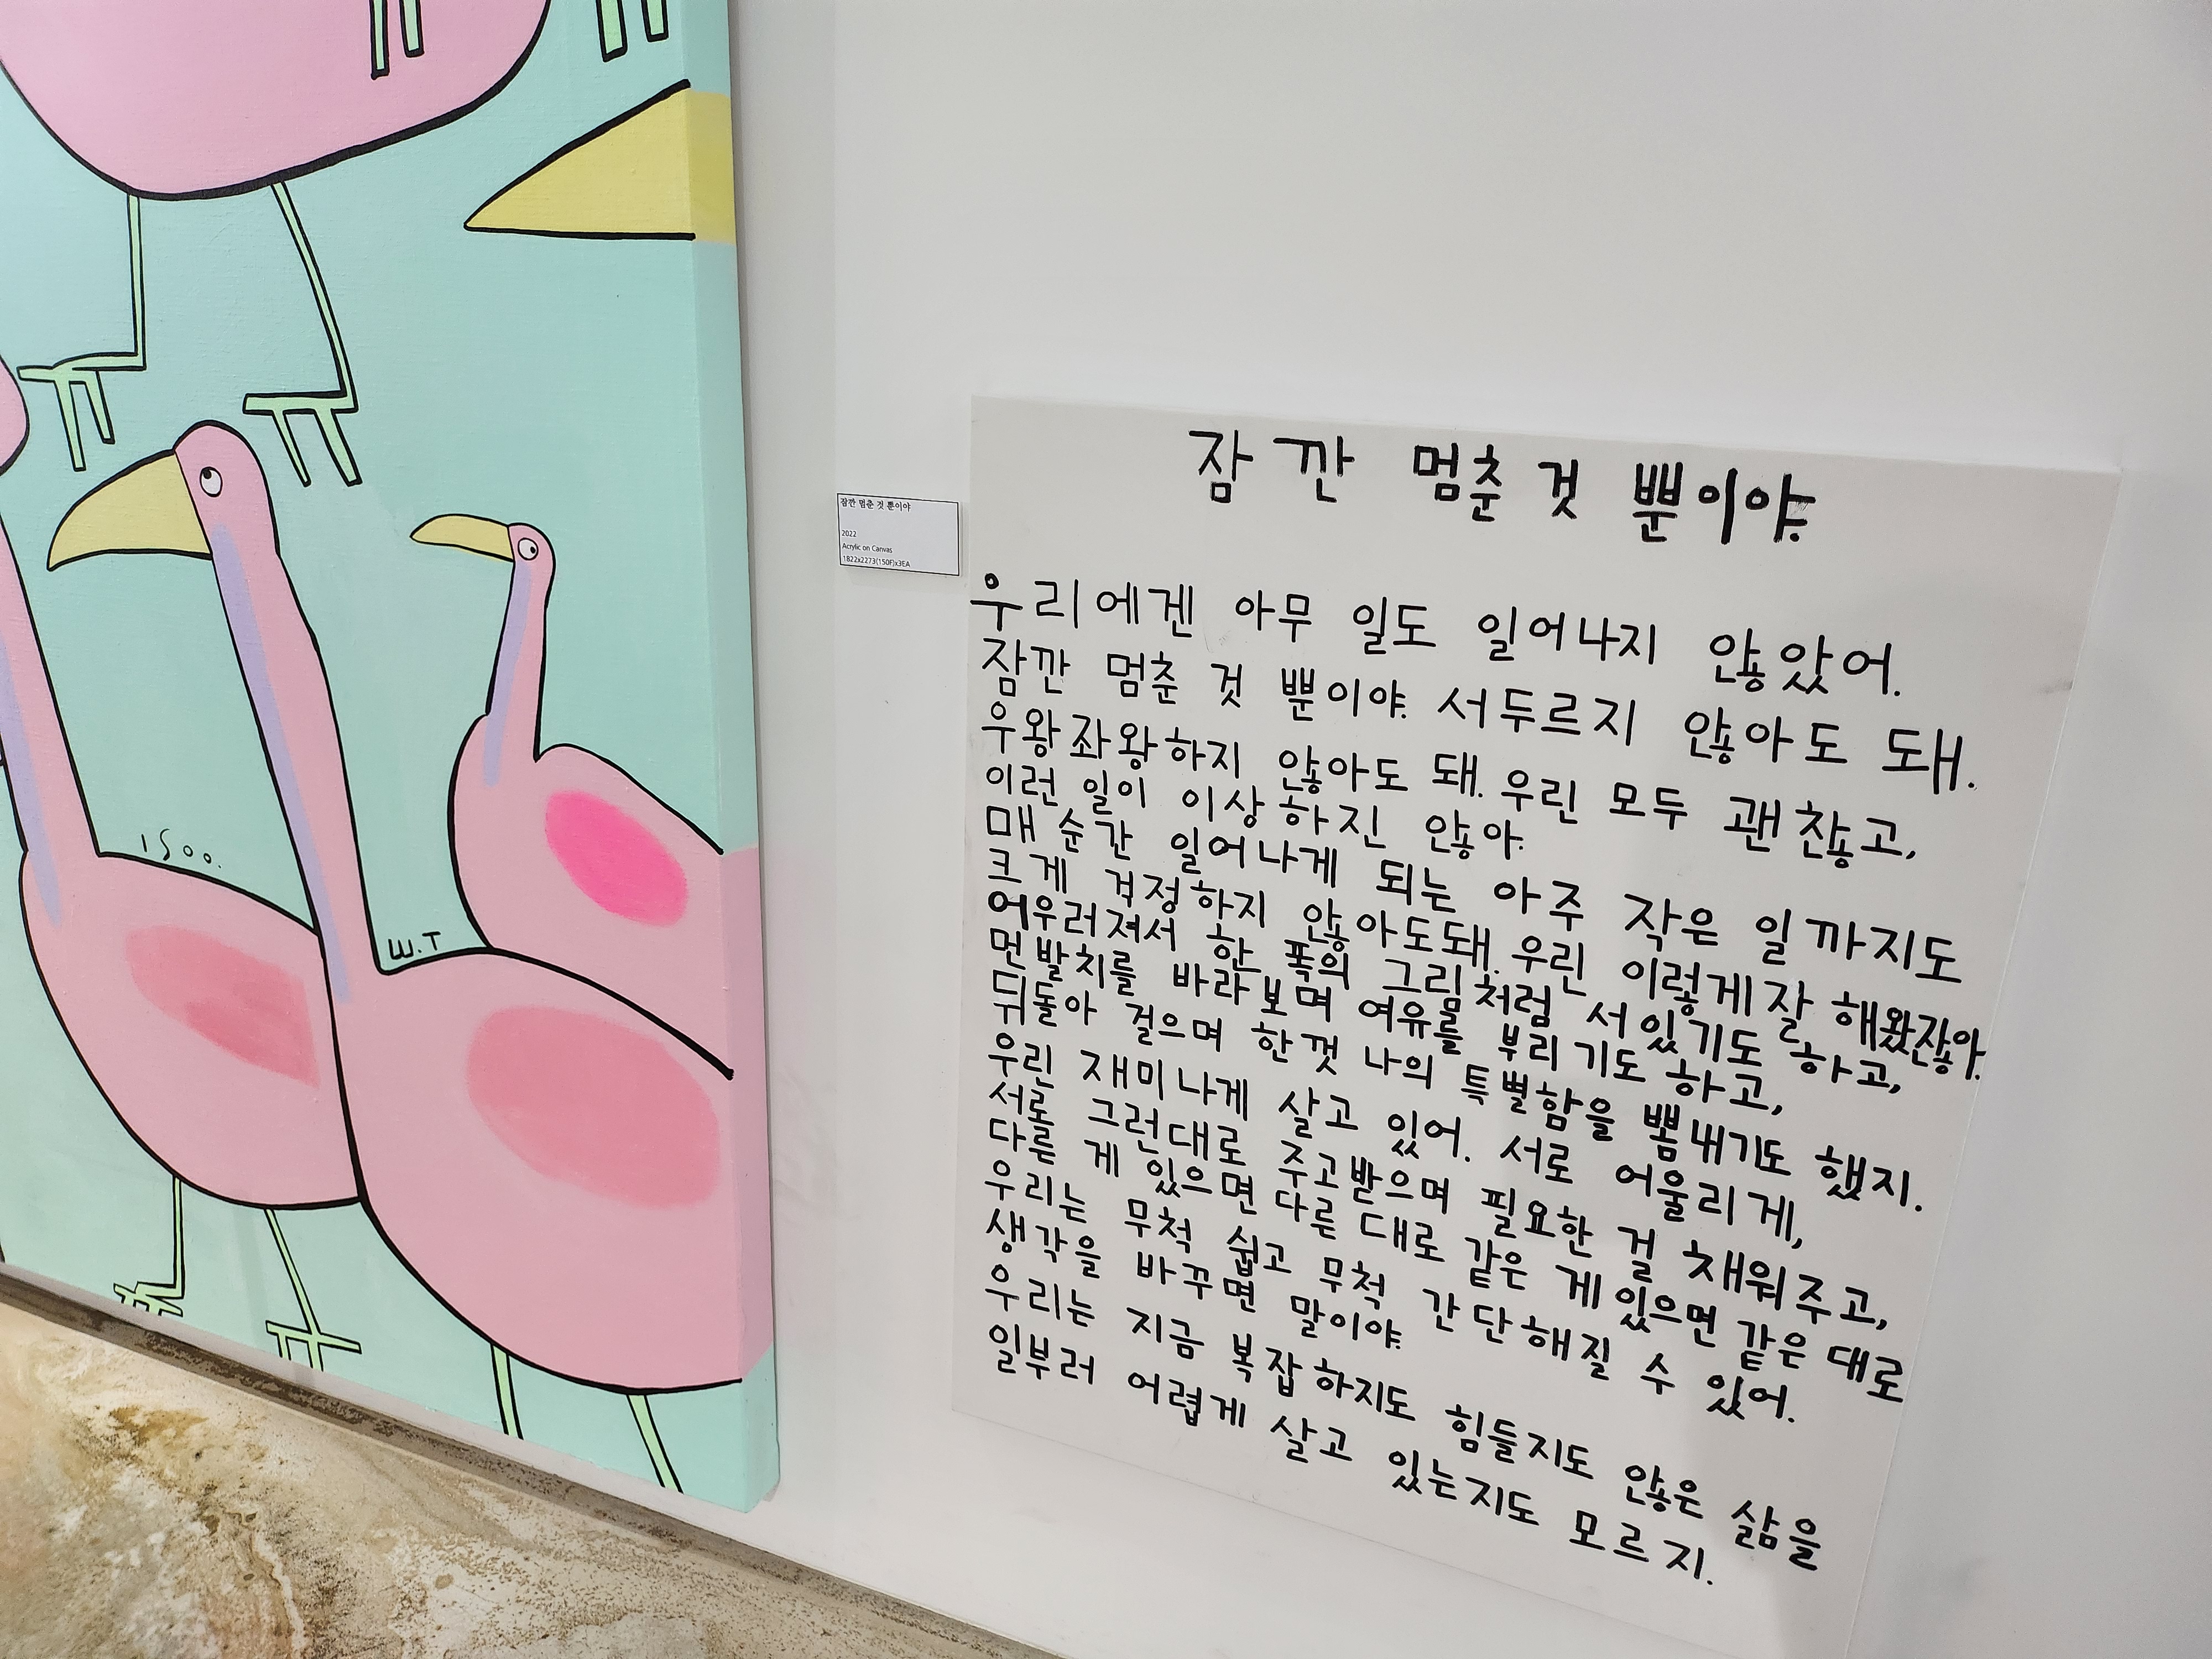 잠깐 멈춘 것 뿐이야
2022
Acrylic on Canvas
1822x2273(150F)x3EA
잠깐 멈춘 것 뿐이야.
우리에겐 아무 일도 일어나지 않았어.
잠깐 멈춘 것 뿐이야. 서두르지 않아도 돼.
우왕좌왕하지 않아도 돼. 우린 모두 괜찮고,
이런 일이 이상하진 않아.
매 순간 일어나게 되는 아주 작은 일까지도
크게 걱정하지 않아도돼. 우린 이렇게 잘 해왔잖아.
어우러져서 한 폭의 그림처럼 서있기도 하고,
먼발치를 바라보며 여유를 부리기도 하고,
뒤돌아 걸으며 한껏 나의 특별함을 뽐내기도 했지.
우린 재미나게 살고 있어. 서로 어울리게,
서로 그런대로 주고받으며 필요한 걸 채워주고,
다른 게 있으면 다른 대로 같은 게 있으면 같은 대로
우리는 무척 쉽고 무척 간단해질 수 있어.
생각을 바꾸면 말이야.
우리는 지금 복잡하지도 힘들지도 않은 삶을
일부러 어렵게 살고 있는지도 모르지.
ISoo.
W.T